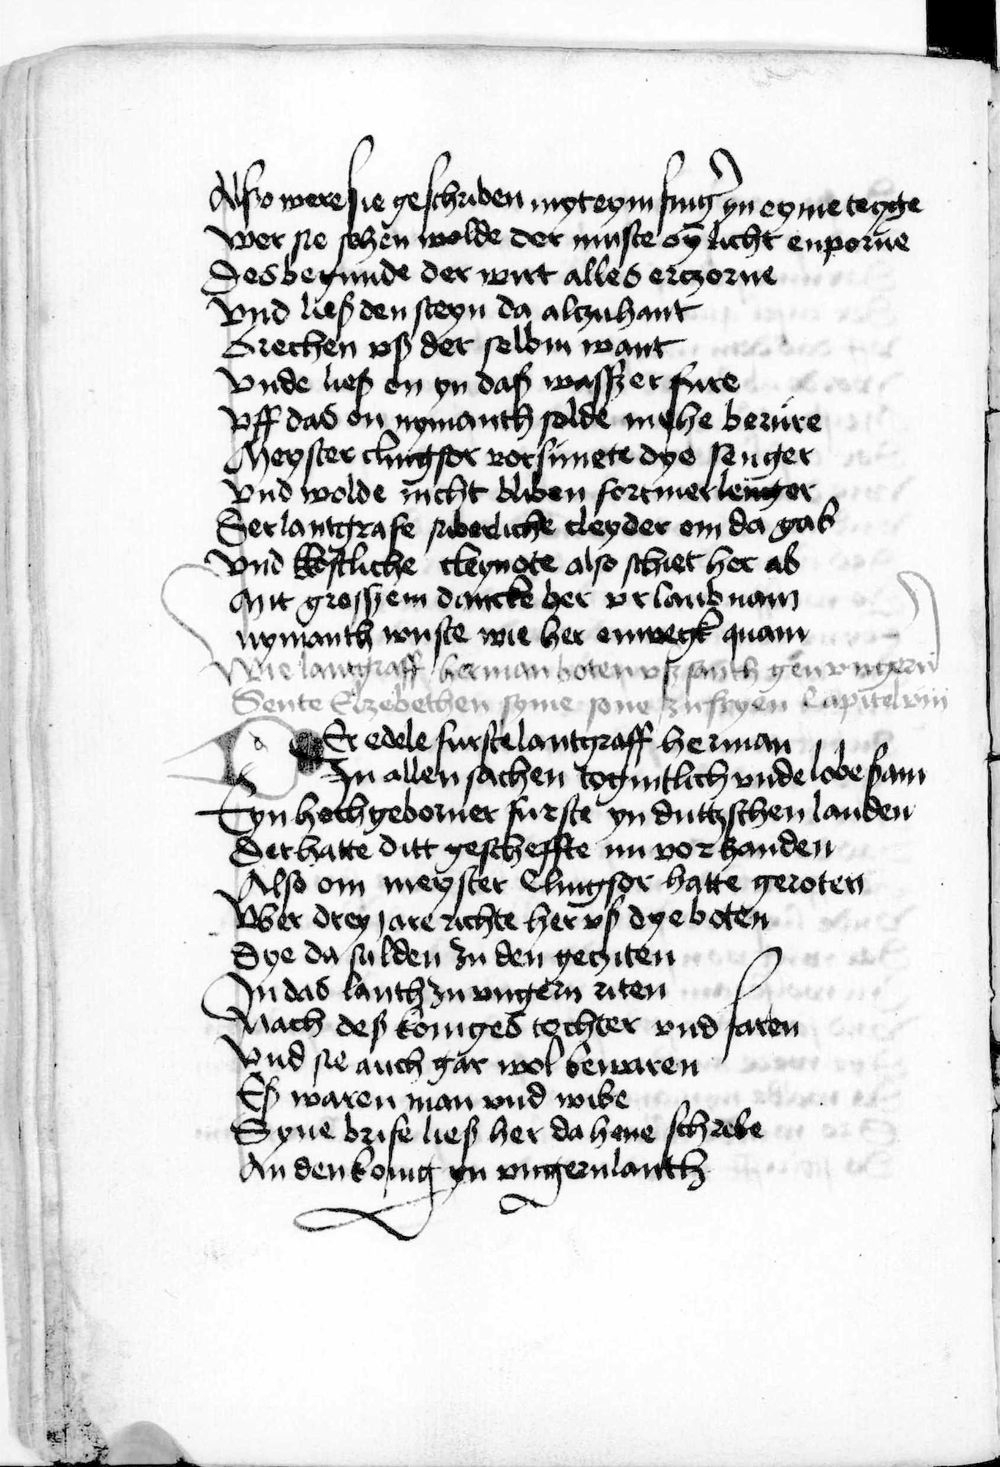 Also were sie geschriben myt eym fing̃ yn eyme teyge
Wer sie sehen wolde der muste ey̅ licht enporne
Des begunde der wirt alles erczorne
Vnd ließ den steyn da alczuhant
Brechen vß der selbin want
Vnde ließ en yn daß wasszer fure
Vff das on nymanth solde mehe berure
Meyster clingsor vorsunete dye senger
Vnd wolde nicht bliben fortmer lenger
Der lantgrafe suberliche cleyder em da gab
Vnd kostliche cleynote also schiet her ab
Mit groszem dancke her vrlaub nam
nymanth wuste wie her enwegk quam
Wie lantgraff herman boten vß santh gen vngern
Sente Elzebethen syme sone zu fryen Capitel viii
Er edele furste lantgraff herman
In allen sachen togintlich vnde lobesam
Eyn hochgeborner furste yn dutzschen landen
Der hatte ditt gescheffte nu vorhanden
Also om meyster Clingsor hatte geroten
Vber drey jare richte her vß dye boten
Dye da sulden zu den geziten
In das lanth zu vngern riten
Nach deß koniges tochter vnd faren
Vnd sie auch gar wol bewaren
Eß waren man vnd wibe
Syne brife ließ her da hene schribe
An den konig yn vngernlanth